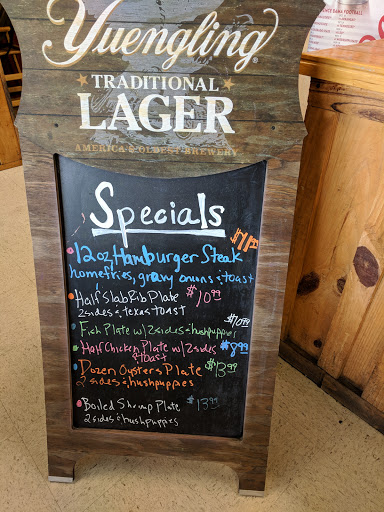 Yuengling
TRADITIONAL
LAGER
AMERICA'S OLDEST BREWERY
Specials
12oz Hamburger Steak
homefries, gravy onions & toast
Half Slab Rib Plate $10.99
2 sides & texas toast
$10.99
Fish Plate w/ 2 sides & hushpuppies
Half Chicken Plate w/ 2 sides $8.99
& toast
Dozen Oysters Plate $13.99
2 sides & hushpuppies
Boiled Shrimp Plate $13.99
2 sides & hushpuppies